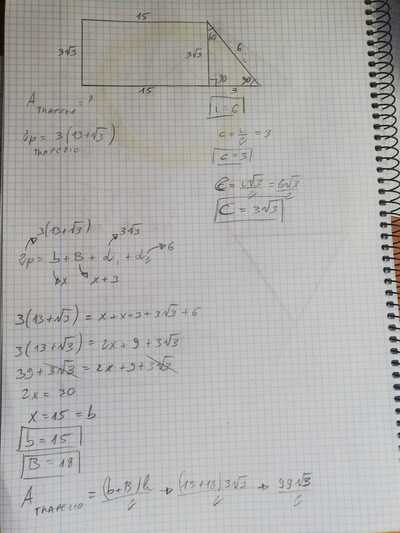 15
60
3√3
3√3
6
90
30
15
3
A TRAPEZIO = ?
l = 6
2p = 3(13+√3)
TRAPEZIO
c = l/2 = 3
c = 3
C = l√3/2 = 6√3/2
C = 3√3
3(13+√3)
3√3
6
2p = b + B + l1 + l2
x
x+3
3(13+√3) = x+x+3+3√3+6
3(13+√3) = 2x+9+3√3
39+3√3 = 2x+9+3√3
2x = 30
x = 15 = b
b = 15
B = 18
A TRAPEZIO = (b+B)h/2 → (15+18)3√3/2 → 99√3/2